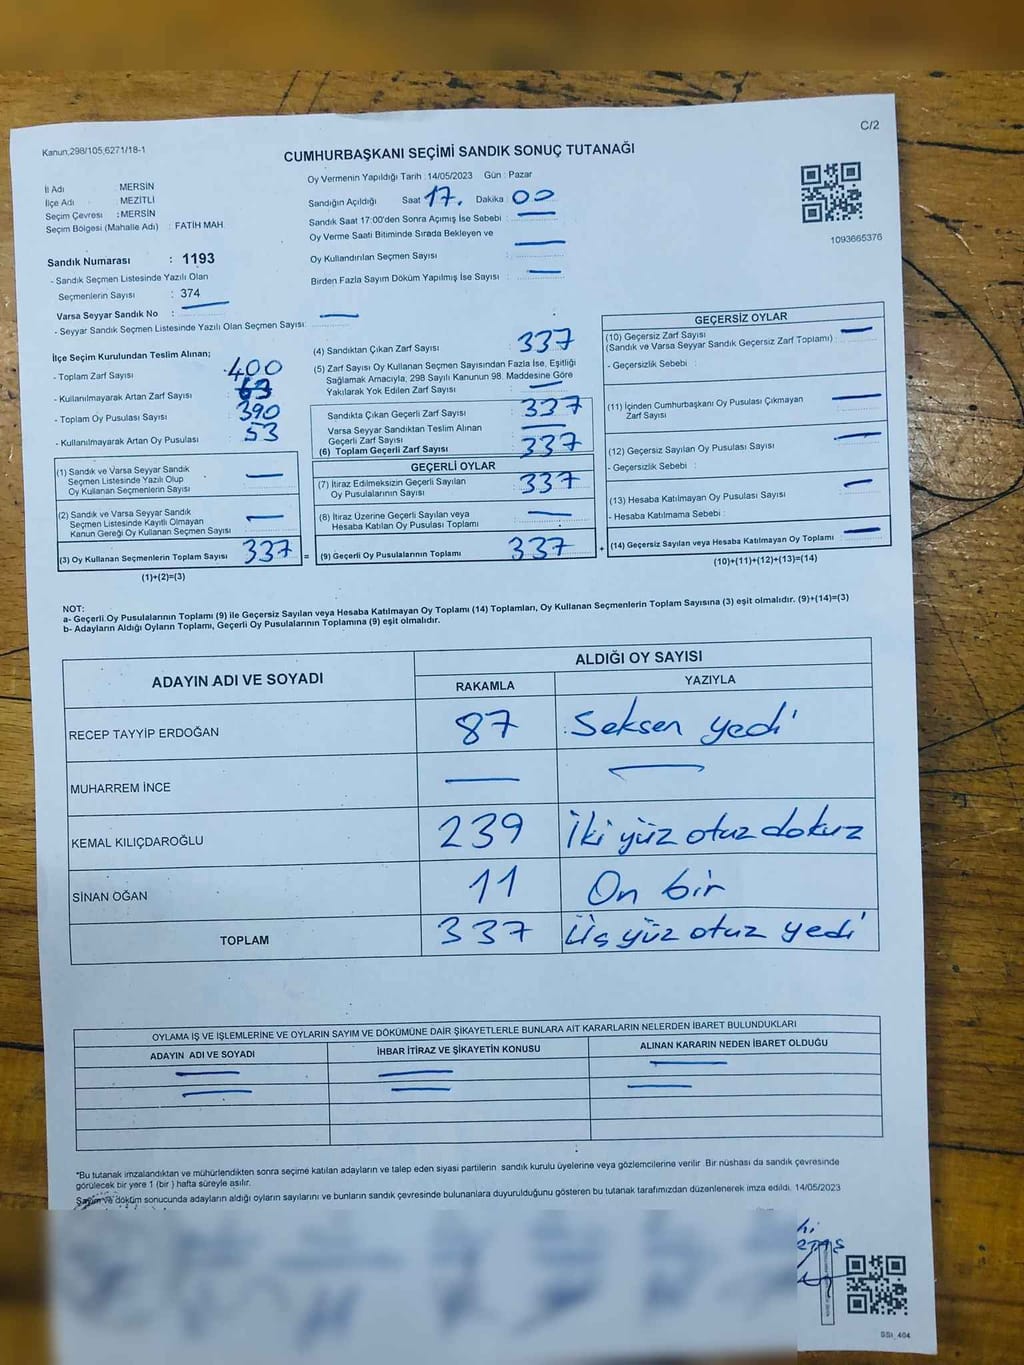 C/2
Kanun;298/105,6271/18-1
CUMHURBAŞKANI SEÇİMİ SANDIK SONUÇ TUTANAĞI
İl Adı MERSİN
İlçe Adı MEZİTLİ
Seçim Çevresi :MERSİN
Seçim Bölgesi (Mahalle Adı) : FATİH MAH
Sandık Numarası : 1193
- Sandık Seçmen Listesinde Yazılı Olan
Seçmenlerin Sayısı : 374
Varsa Seyyar Sandık No :
- Seyyar Sandık Seçmen Listesinde Yazılı Olan Seçmen Sayısı:
Oy Vermenin Yapıldığı Tarih : 14/05/2023 Gün : Pazar
Sandığın Açıldığı Saat 17. Dakika 00
Sandık Saat 17:00'den Sonra Açımış İse Sebebi :
Oy Verme Saati Bitiminde Sırada Bekleyen ve
Oy Kullandırılan Seçmen Sayısı :
Birden Fazla Sayım Döküm Yapılmış İse Sayısı :
1093665376
İlçe Seçim Kurulundan Teslim Alınan;
- Toplam Zarf Sayısı : 400
- Kullanılmayarak Artan Zarf Sayısı : 63
- Toplam Oy Pusulası Sayısı : 390
- Kullanılmayarak Artan Oy Pusulası : 53
(1) Sandık ve Varsa Seyyar Sandık
Seçmen Listesinde Yazılı Olup
Oy Kullanan Seçmenlerin Sayısı :
(2) Sandık ve Varsa Seyyar Sandık
Seçmen Listesinde Kayıtlı Olmayan
Kanun Gereği Oy Kullanan Seçmen Sayısı :
(3) Oy Kullanan Seçmenlerin Toplam Sayısı : 337 =
(1)+(2)=(3)
(4) Sandıktan Çıkan Zarf Sayısı : 337
(5) Zarf Sayısı Oy Kullanan Seçmen Sayısından Fazla İse, Eşitliği
Sağlamak Amacıyla, 298 Sayılı Kanunun 98. Maddesine Göre
Yakılarak Yok Edilen Zarf Sayısı :
Sandıkta Çıkan Geçerli Zarf Sayısı : 337
Varsa Seyyar Sandıktan Teslim Alınan
Geçerli Zarf Sayısı :
(6) Toplam Geçerli Zarf Sayısı : 337
GEÇERLİ OYLAR
(7) İtiraz Edilmeksizin Geçerli Sayılan
Oy Pusulalarının Sayısı : 337
(8) İtiraz Üzerine Geçerli Sayılan veya
Hesaba Katılan Oy Pusulası Toplamı :
(9) Geçerli Oy Pusulalarının Toplamı : 337 +
GEÇERSİZ OYLAR
(10) Geçersiz Zarf Sayısı
(Sandık ve Varsa Seyyar Sandık Geçersiz Zarf Toplamı) :
- Geçersizlik Sebebi :
(11) İçinden Cumhurbaşkanı Oy Pusulası Çıkmayan
Zarf Sayısı :
(12) Geçersiz Sayılan Oy Pusulası Sayısı :
- Geçersizlik Sebebi :
(13) Hesaba Katılmayan Oy Pusulası Sayısı :
- Hesaba Katılmama Sebebi :
(14) Geçersiz Sayılan veya Hesaba Katılmayan Oy Toplamı :
(10)+(11)+(12)+(13)=(14)
NOT:
a- Geçerli Oy Pusulalarının Toplamı (9) ile Geçersiz Sayılan veya Hesaba Katılmayan Oy Toplamı (14) Toplamları, Oy Kullanan Seçmenlerin Toplam Sayısına (3) eşit olmalıdır. (9)+(14)=(3)
b- Adayların Aldığı Oyların Toplamı, Geçerli Oy Pusulalarının Toplamına (9) eşit olmalıdır.
ADAYIN ADI VE SOYADI ALDIĞI OY SAYISI
RAKAMLA YAZIYLA
RECEP TAYYİP ERDOĞAN 87 Seksen yedi
MUHARREM İNCE
KEMAL KILIÇDAROĞLU 239 İki yüz otuz dokuz
SİNAN OĞAN 11 On bir
TOPLAM 337 Üç yüz otuz yedi
OYLAMA İŞ VE İŞLEMLERİNE VE OYLARIN SAYIM VE DÖKÜMÜNE DAİR ŞİKAYETLERLE BUNLARA AİT KARARLARIN NELERDEN İBARET BULUNDUKLARI
ADAYIN ADI VE SOYADI İHBAR İTİRAZ VE ŞİKAYETİN KONUSU ALINAN KARARIN NEDEN İBARET OLDUĞU
*Bu tutanak imzalandıktan ve mühürlendikten sonra seçime katılan adayların ve talep eden siyasi partilerin sandık kurulu üyelerine veya gözlemcilerine verilir. Bir nüshası da sandık çevresinde
görülecek bir yere 1 (bir) hafta süreyle asılır.
Sayım ve döküm sonucunda adayların aldığı oyların sayılarını ve bunların sandık çevresinde bulunanlara duyurulduğunu gösteren bu tutanak tarafımızdan düzenlenerek imza edildi. 14/05/2023